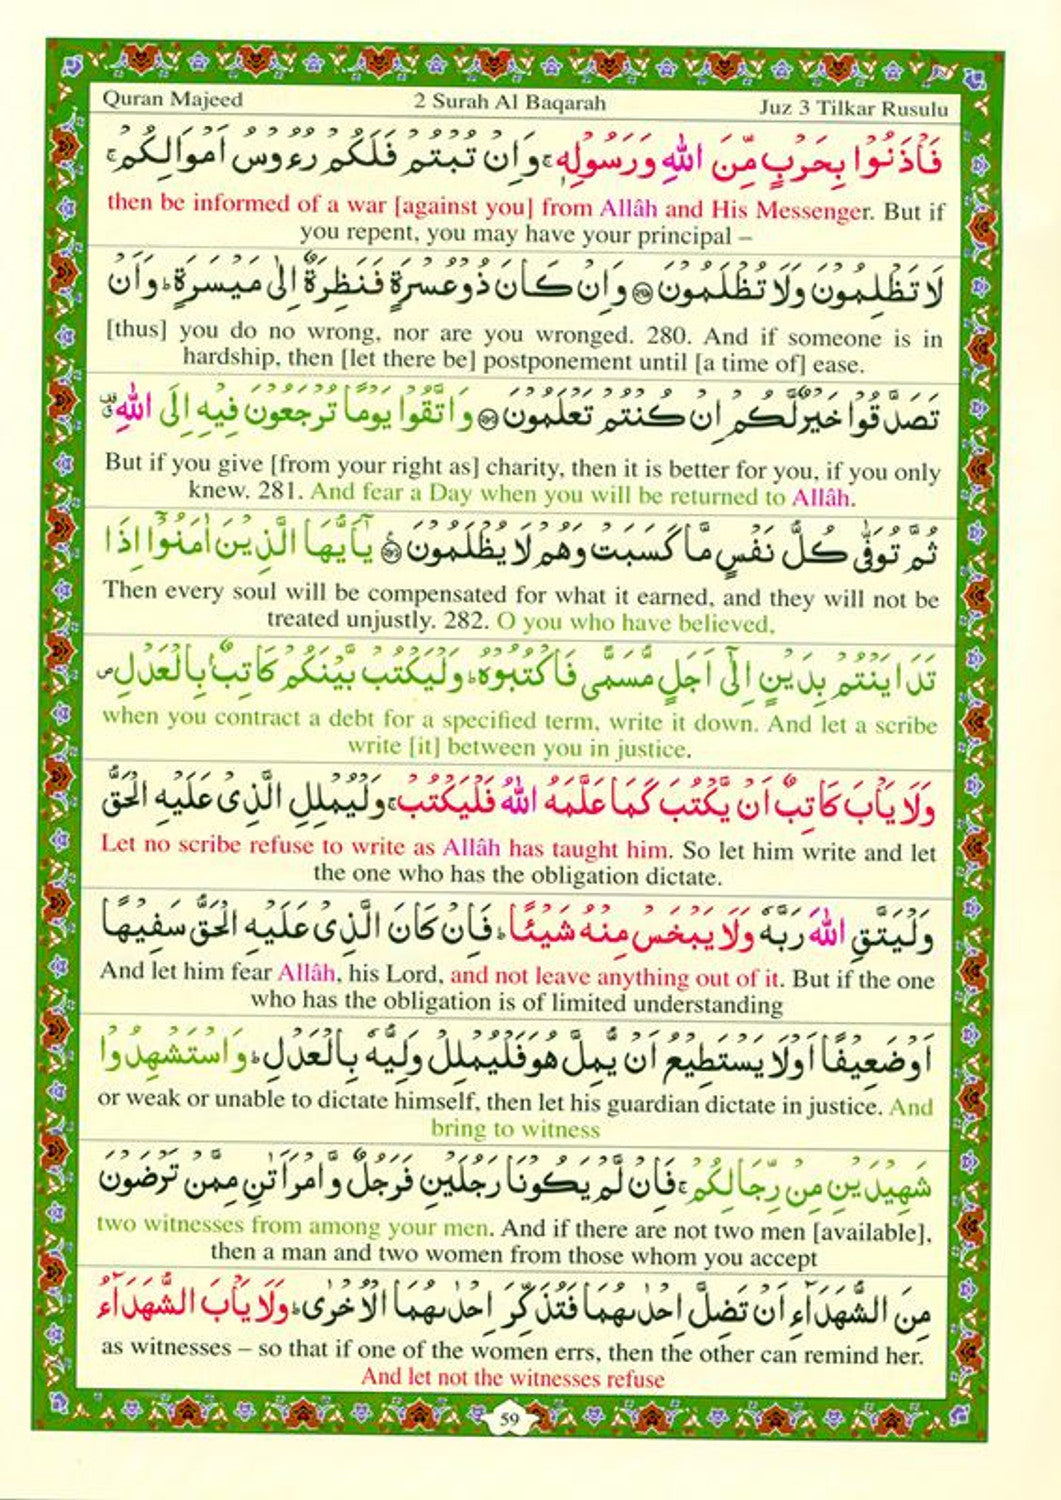 Quran Majeed 2 Surah Al Baqarah Juz 3 Tilkar Rusulu
فَأْذَنُوْا بِحَرْبٍ مِّنَ اللّٰهِ وَرَسُوْلِهٖ ۚ وَاِنْ تُبْتُمْ فَلَكُمْ رُءُوْسُ اَمْوَالِكُمْ ۚ
then be informed of a war [against you] from Allâh and His Messenger. But if
you repent, you may have your principal –
لَا تَظْلِمُوْنَ وَلَا تُظْلَمُوْنَ ۝ وَاِنْ كَانَ ذُوْ عُسْرَةٍ فَنَظِرَةٌ اِلٰى مَيْسَرَةٍ ؕ وَاَنْ
[thus] you do no wrong, nor are you wronged. 280. And if someone is in
hardship, then [let there be] postponement until [a time of] ease.
تَصَدَّقُوْا خَيْرٌ لَّكُمْ اِنْ كُنْتُمْ تَعْلَمُوْنَ ۝ وَاتَّقُوْا يَوْمًا تُرْجَعُوْنَ فِيْهِ اِلَى اللّٰهِ
But if you give [from your right as] charity, then it is better for you, if you only
knew. 281. And fear a Day when you will be returned to Allâh.
ثُمَّ تُوَفّٰى كُلُّ نَفْسٍ مَّا كَسَبَتْ وَهُمْ لَا يُظْلَمُوْنَ ۝ يٰٓاَيُّهَا الَّذِيْنَ اٰمَنُوْٓا اِذَا
Then every soul will be compensated for what it earned, and they will not be
treated unjustly. 282. O you who have believed,
تَدَايَنْتُمْ بِدَيْنٍ اِلٰٓى اَجَلٍ مُّسَمًّى فَاكْتُبُوْهُ ؕ وَلْيَكْتُبْ بَّيْنَكُمْ كَاتِبٌۢ بِالْعَدْلِ ۪
when you contract a debt for a specified term, write it down. And let a scribe
write [it] between you in justice.
وَلَا يَأْبَ كَاتِبٌ اَنْ يَّكْتُبَ كَمَا عَلَّمَهُ اللّٰهُ فَلْيَكْتُبْ ۚ وَلْيُمْلِلِ الَّذِيْ عَلَيْهِ الْحَقُّ
Let no scribe refuse to write as Allâh has taught him. So let him write and let
the one who has the obligation dictate.
وَلْيَتَّقِ اللّٰهَ رَبَّهٗ وَلَا يَبْخَسْ مِنْهُ شَيْئًا ؕ فَاِنْ كَانَ الَّذِيْ عَلَيْهِ الْحَقُّ سَفِيْهًا
And let him fear Allâh, his Lord, and not leave anything out of it. But if the one
who has the obligation is of limited understanding
اَوْ ضَعِيْفًا اَوْ لَا يَسْتَطِيْعُ اَنْ يُّمِلَّ هُوَ فَلْيُمْلِلْ وَلِيُّهٗ بِالْعَدْلِ ؕ وَاسْتَشْهِدُوْا
or weak or unable to dictate himself, then let his guardian dictate in justice. And
bring to witness
شَهِيْدَيْنِ مِنْ رِّجَالِكُمْ ۚ فَاِنْ لَّمْ يَكُوْنَا رَجُلَيْنِ فَرَجُلٌ وَّامْرَاَتٰنِ مِمَّنْ تَرْضَوْنَ
two witnesses from among your men. And if there are not two men [available],
then a man and two women from those whom you accept
مِنَ الشُّهَدَآءِ اَنْ تَضِلَّ اِحْدٰىهُمَا فَتُذَكِّرَ اِحْدٰىهُمَا الْاُخْرٰى ؕ وَلَا يَأْبَ الشُّهَدَآءُ
as witnesses – so that if one of the women errs, then the other can remind her.
And let not the witnesses refuse
59